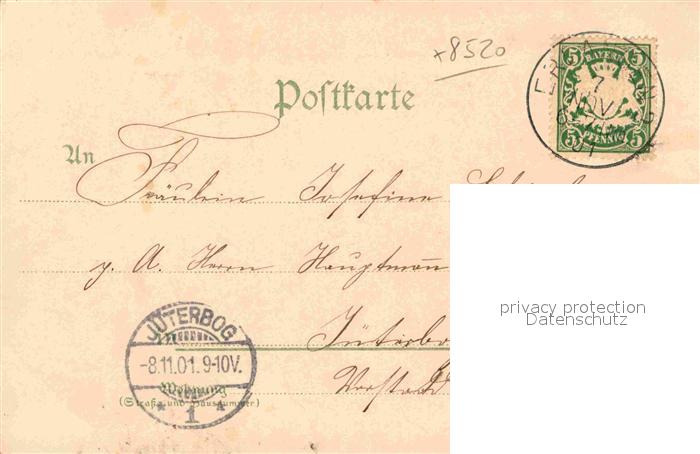 +8520
5 BAYERN 5
Postkarte
7
NOV
01
5 PFENNIG 5
An
Fräulein Josefine
p. A. Herrn Hauptmann
privacy protection
Datenschutz
JÜTERBOG
-8.11.01. 9-10V.
Wohnung
(Straße und Hausnummer)
* 1 *
Jüterbo
Vorstadt